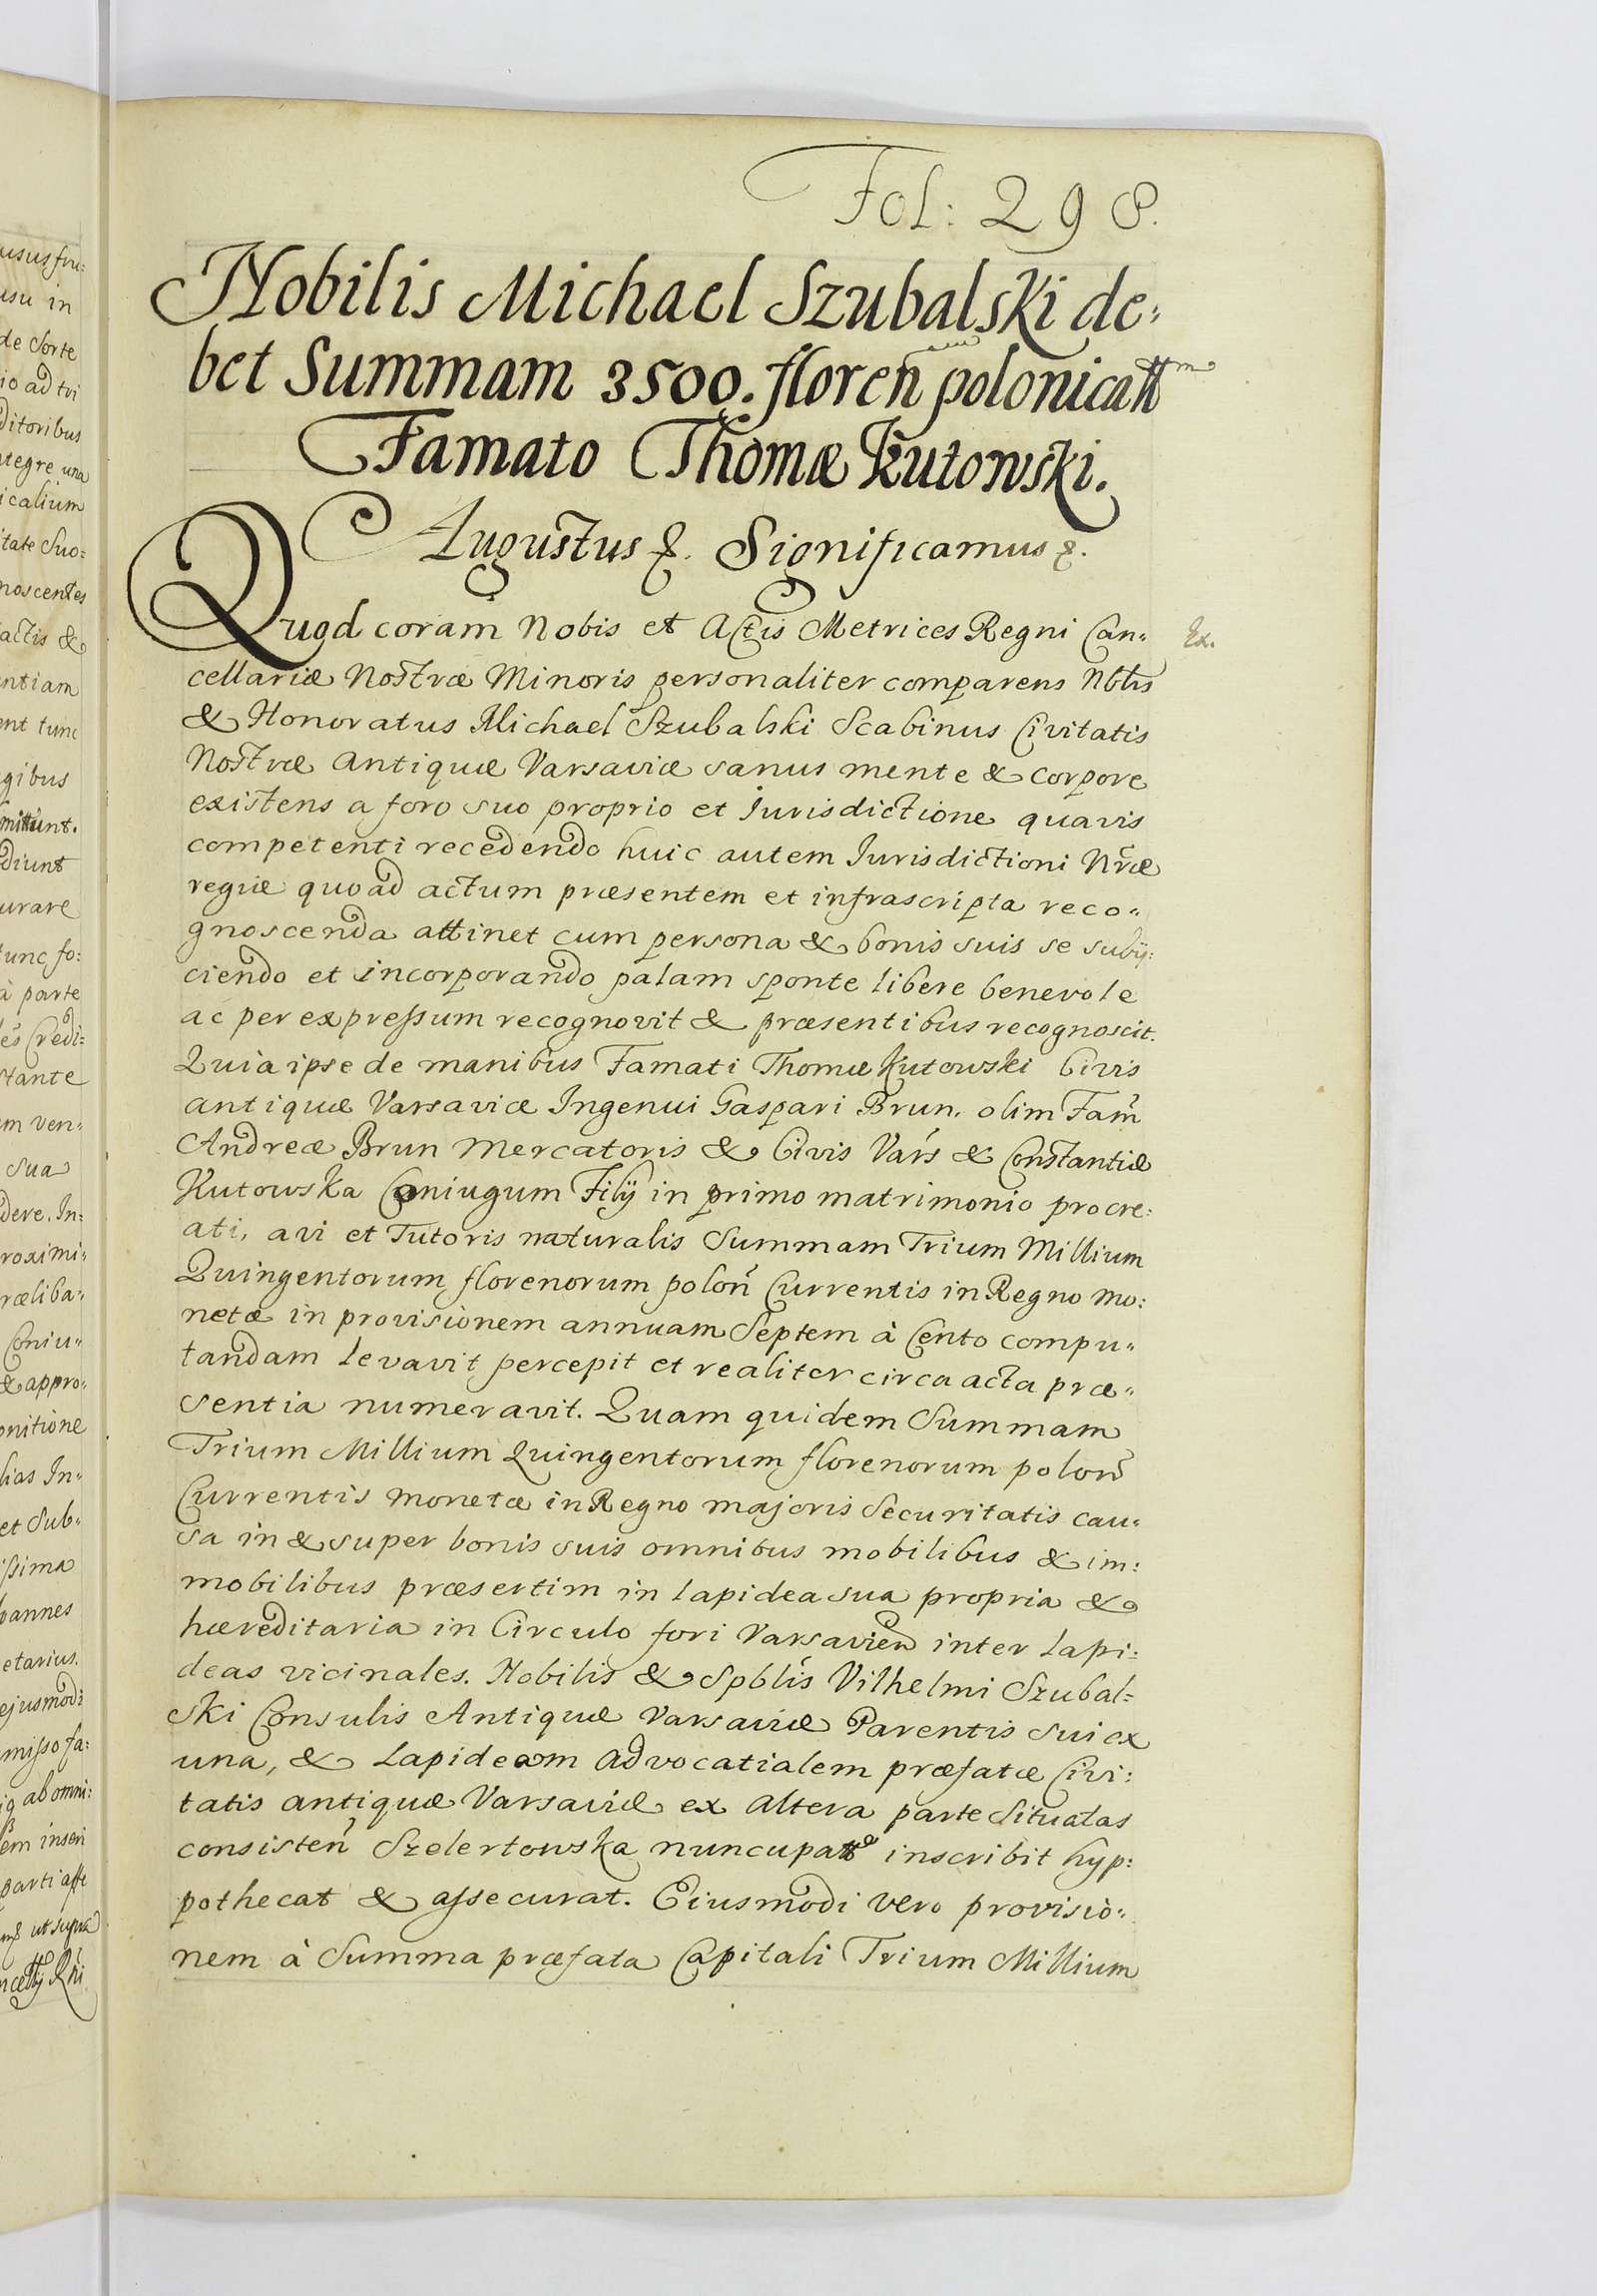 Fol: 298.
Nobilis Michael Szubalski de:
bet Summam 3500. floren̄ polonicatt m
Famato Thomæ Kutowski.
Augustus &. Significamus &.
Quod coram Nobis et Actis Metrices Regni Can:
Ex.
cellariæ Nostræ Minoris personaliter comparens Nblis
& Honoratus Michael Szubalski Scabinus Civitatis
Nostræ Antiquæ Varsaviæ sanus mente & corpore
existens a foro suo proprio et Iurisdictione quavis
competenti recedendo huic autem Iurisdictioni Nræ
regiæ quoad actum præsentem et infrascripta reco:
gnoscenda attinet cum persona & bonis suis se subij:
ciendo et incorporando palam sponte libere benevole
ac per expressum recognovit & præsentibus recognoscit.
Quia ipse de manibus Famati Thomæ Kutowski Civis
antiquæ Varsaviæ Ingenui Gaspari Brun. olim Fam̃
Andreæ Brun Mercatoris & Civis Vars̃ & Constantiæ
Kutowska Coniugum Filÿ in primo matrimonio procre:
ati, avi et Tutoris naturalis Summam Trium Millium
Quingentorum florenorum polon̄ Currentis in Regno mo:
netæ in provisionem annuam Septem à Cento compu:
tandam levavit percepit et realiter circa acta præ:
sentia numeravit. Quam quidem Summam
Trium Millium Quingentorum florenorum polon̄
Currentis monetæ in Regno majoris Securitatis cau:
sa in & super bonis suis omnibus mobilibus & im:
mobilibus præsertim in lapidea sua propria &
hæreditaria in Circulo fori Varsavien̄ inter lapi:
deas vicinales. Nobilis & Spblis Vilhelmi Szubal=
ski Consulis Antiquæ Varsaviæ Parentis sui ex
una, & Lapideam advocatialem præfatæ Civi:
tatis antiquæ Varsaviæ ex altera parte Situatas
consisten̄ Szelertowska nuncupatt inscribit hyp:
pothecat & assecurat. Eiusmodi vero provisio:
nem à Summa præfata Capitali Trium Millium